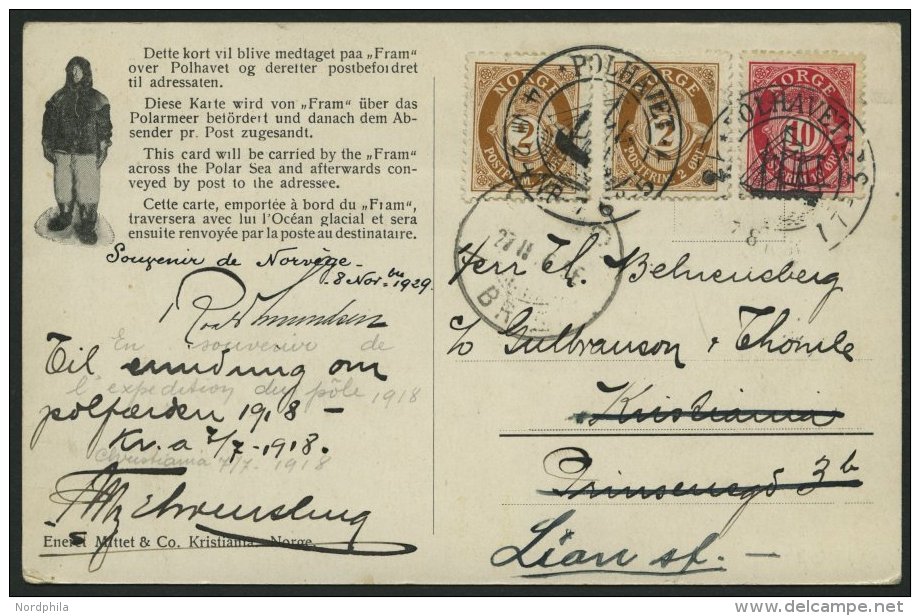 Dette kort vil blive medtaget paa „Fram"
over Polhavet og deretter postbefordret
til adressaten.
Diese Karte wird von „Fram" über das
Polarmeer befördert und danach dem Ab-
sender pr. Post zugesandt.
This card will be carried by the „Fram"
across the Polar Sea and afterwards con-
veyed by post to the adressee.
Cette carte, emportée à bord du „Fram",
traversera avec lui l'Océan glacial et sera
ensuite renvoyée par la poste au destinataire.
Souvenir de Norvège
8 Nov. bre 1929.
Roald Amundsen
En souvenir de
l'expedition du pôle 1918
Christiania 7/7. 1918
Til om
polfærden 1918 –
Kr.a 7/7-1918.
Eneret Mittet & Co. Kristiania, Norge.
NORGE
2
POSTFRIM.
NORGE
2
POSTFRIM. 2 ØRE
NORGE
10
POLHAVET
POLHAVET
Herr Th.
c/o Gulbranson & Thomle
Kristiania
Prinsensgd 3b
Lian st. –
Nordphila
delcampe.net